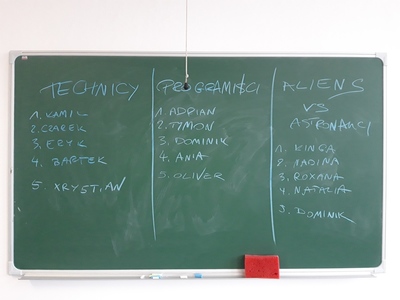 TECHNICY
1. KAMIL
2. CZAREK
3. ERYK
4. BARTEK
5. XRYSTIAN
PROGRAMIŚCI
1. ADRIAN
2. TYMON
3. DOMINIK
4. ANIA
5. OLIVER
ALIENS
VS
ASTRONAUCI
1. KINGA
2. NADINA
3. ROXANA
4. NATALIA
5. DOMINIK